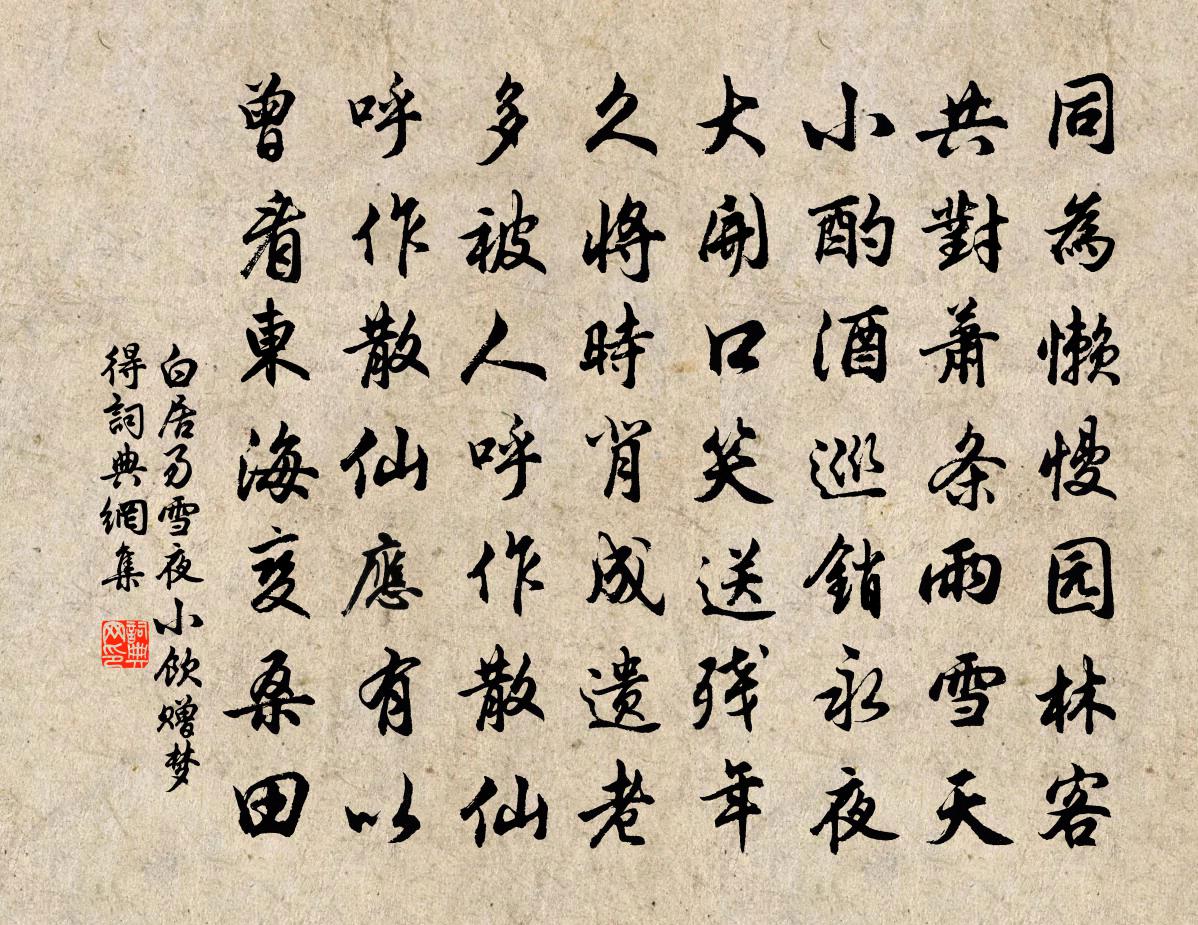 同為懒慢园林客
共對萧条雨雪天
小酌酒巡銷永夜
大開口笑送残年
久将時背成遗老
多被人呼作散仙
呼作散仙應有以
曾看東海变桑田
白居易雪夜小饮赠梦
得詞典網集
詞典
网印